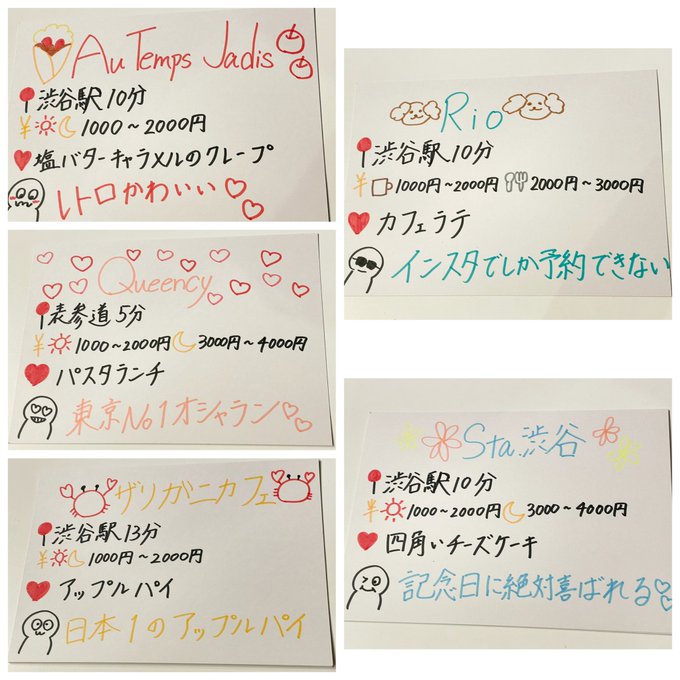 Au Temps Jadis
渋谷駅10分
¥ 1000〜2000円
塩バターキャラメルのクレープ
レトロかわいい
Queency
表参道5分
¥ 1000〜2000円 3000円〜4000円
パスタランチ
東京No1オシャラン
ザリガニカフェ
渋谷駅13分
¥ 1000円〜2000円
アップルパイ
日本1のアップルパイ
Rio
渋谷駅10分
¥ 1000円〜2000円 2000円〜3000円
カフェラテ
インスタでしか予約できない
Sta.渋谷
渋谷駅10分
¥ 1000〜2000円 3000〜4000円
四角いチーズケーキ
記念日に絶対喜ばれる